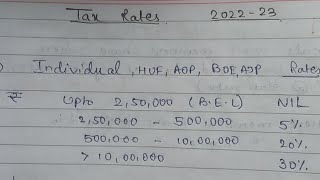 Tax Rates 2022-23
Individual, HUF, AOP, BOI, AJP Rates
₹ Upto 2,50,000 (B.E.L) NIL
2,50,000 - 500,000 5%
500,000 - 10,00,000 20%
> 10,00,000 30%